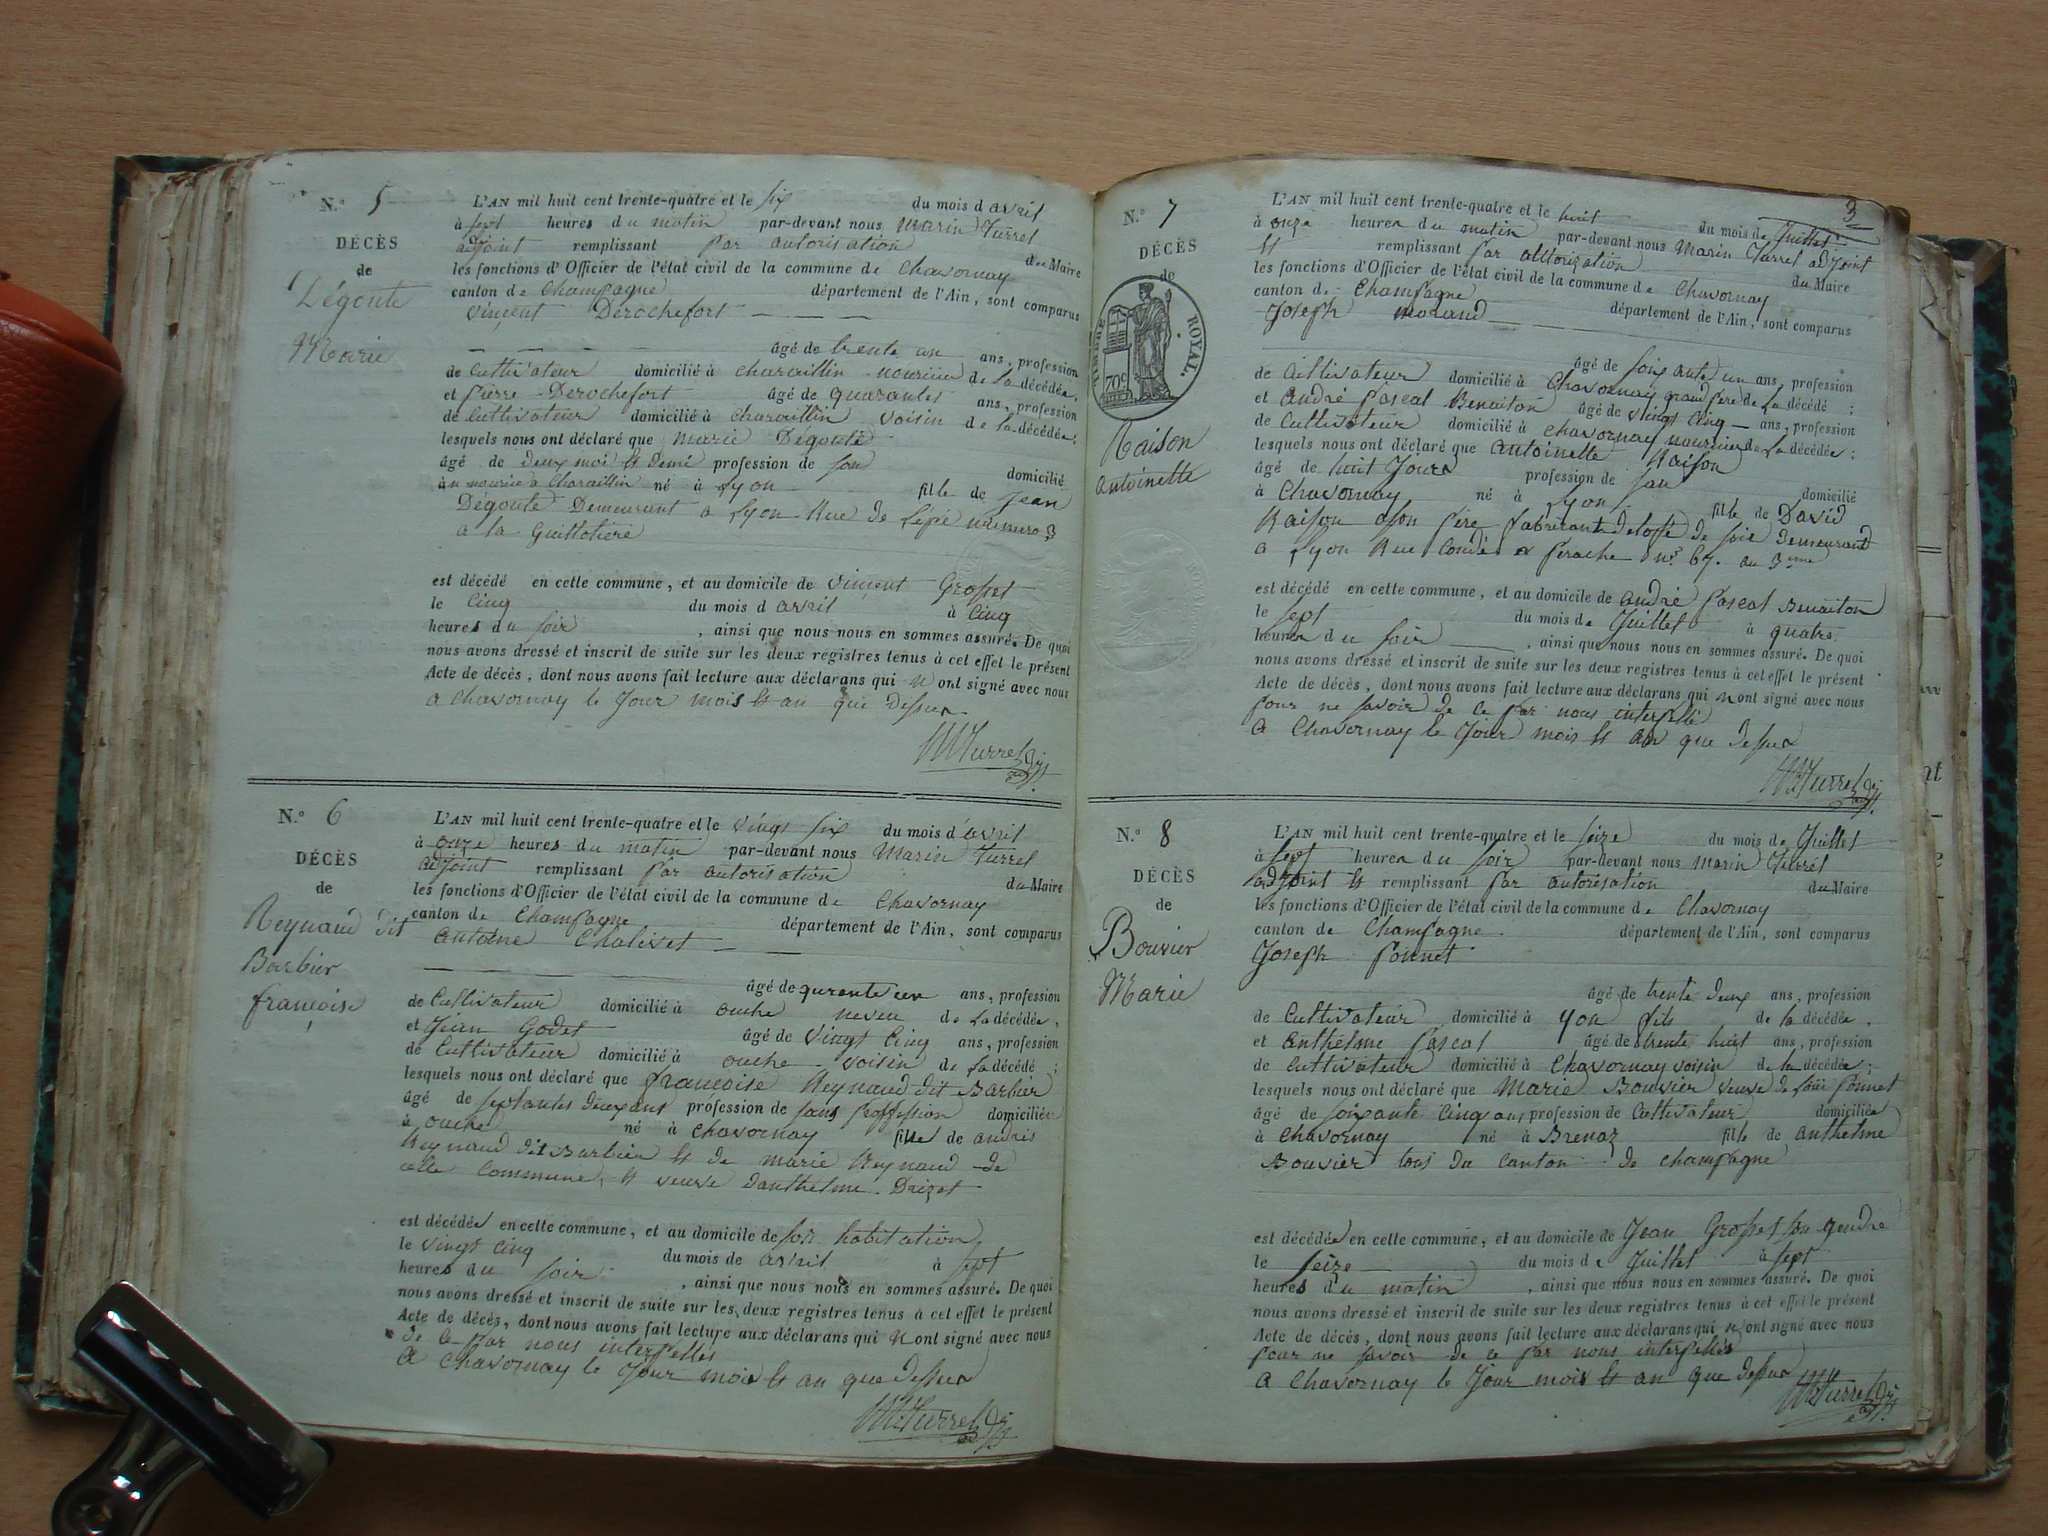 N.° 5
DÉCÈS
de
Dégoute
Marie
L'AN mil huit cent trente-quatre et le six du mois d avril
à sept heures du matin par-devant nous Marin Turrel
adjoint remplissant par autorisation du Maire
les fonctions d'Officier de l'état civil de la commune de Chavornay
canton de Champagne département de l'Ain, sont comparus
Vinçent Derochefort
âgé de trente an ans, profession
de Cultivateur domicilié à charaillin nouricier de la décédée,
et Pierre Derochefort âgé de quarantes ans, profession
de Cultivateur domicilié à charaillin voisin de la décédée;
lesquels nous ont déclaré que marie Dégoute
âgé de deux moi et demi profession de domicilié
à nourice a Charaillin né à Lyon fille de Jean
Dégoute Demeurant a Lyon Rue de Lépé numero 3
a la Guillotiere
est décédé en cette commune, et au domicile de vinçent Grosset
le cinq du mois d avril à cinq
heures du soir, ainsi que nous nous en sommes assuré. De quoi
nous avons dressé et inscrit de suite sur les deux registres tenus à cet effet le présent
Acte de décès, dont nous avons fait lecture aux déclarans qui n ont signé avec nous
a chavornay le Jour mois et an que dessus
M Turrel adjt.
N.° 6
DÉCÈS
de
Reynaud dit
Barbier
françoise
L'AN mil huit cent trente-quatre et le vingt six du mois d'avril
à onze heures du matin par-devant nous Marin Turrel
adjoint remplissant par autorisation du Maire
les fonctions d'Officier de l'état civil de la commune de Chavornay
canton de Champagne département de l'Ain, sont comparus
antoine Chaliset
âgé de qurente un ans, profession
de Cultivateur domicilié à ouche neveu de la décédée,
et Jean Godet âgé de vingt cinq ans, profession
de Cultivateur domicilié à ouche voisin de la décédé;
lesquels nous ont déclaré que françoise Reynaud dit Barbier
âgé de septantes deux ans profession de sans proffession domiciliée
à ouche né à chavornay fille de andris
Reynaud dit Barbier et de marie Reynaud de
celle Commune, et veuve danthelme Drizet
est décédée en cette commune, et au domicile de son habitation
le vingt cinq du mois de avril à sept
heures du soir, ainsi que nous nous en sommes assuré. De quoi
nous avons dressé et inscrit de suite sur les deux registres tenus à cet effet le présent
Acte de décès, dont nous avons fait lecture aux déclarans qui n ont signé avec nous
de ce par nous interpellés
a chavornay le Jour mois et an que dessus
M Turrel adjt.
3
N.° 7
DÉCÈS
de
TIMBRE ROYAL.
70c
Raison
antoinette
L'AN mil huit cent trente-quatre et le huit du mois de Juillet
à onze heures du matin par-devant nous Marin Turrel adjoint
et remplissant par attorization du Maire
les fonctions d'Officier de l'état civil de la commune de Chavornay
canton de Champagne département de l'Ain, sont comparus
Joseph morand
âgé de soixante un ans, profession
de Cultivateur domicilié à Chavornay grand pere de la décédé;
et andré Pascal Benaiton âgé de vingt cinq ans, profession
de Cultivateur domicilié à chavornay nouricier de la décédée;
lesquels nous ont déclaré que antoinette Raison
âgé de huit Jours profession de domicilié
à Chavornay né à Lyon fille de David
Raison son père fabricant detoffe de soie demeurant
a Lyon Rue Condé a perache n° 67. au 3me
est décédé en cette commune, et au domicile de andré Pascal Benaiton
le sept du mois de Juillet à quatre
heures du soir, ainsi que nous nous en sommes assuré. De quoi
nous avons dressé et inscrit de suite sur les deux registres tenus à cet effet le présent
Acte de décès, dont nous avons fait lecture aux déclarans qui n ont signé avec nous
pour ne savoir de ce par nous interpellé
a Chavornay le Jour mois et an que dessus
M Turrel adjt.
N.° 8
DÉCÈS
de
Bouvier
Marie
L'AN mil huit cent trente-quatre et le seize du mois de Juillet
à sept heures du soir par-devant nous marin Turrel
adjoint et remplissant par autorisation du Maire
les fonctions d'Officier de l'état civil de la commune de Chavornay
canton de Champagne département de l'Ain, sont comparus
Joseph Ponnet
âgé de trente deux ans, profession
de Cultivateur domicilié à yon fils de la décédée,
et anthelme Pascal âgé de trente huit ans, profession
de Cultivateur domicilié à Chavornay voisin de la décédée;
lesquels nous ont déclaré que Marie Bouvier veuve de Ponnet
âgé de soixante cinq ans profession de Cultivateur domiciliée
à Chavornay né à Brenaz fille de anthelme
Bouvier tous du canton de champagne
est décédée en cette commune, et au domicile de Jean Grosset son gendre
le seize du mois de Juillet à sept
heures du matin, ainsi que nous nous en sommes assuré. De quoi
nous avons dressé et inscrit de suite sur les deux registres tenus à cet effet le présent
Acte de décès, dont nous avons fait lecture aux déclarans qui n ont signé avec nous
pour ne savoir de ce par nous interpellés
a Chavornay le Jour mois et an que dessus
M Turrel adjt.